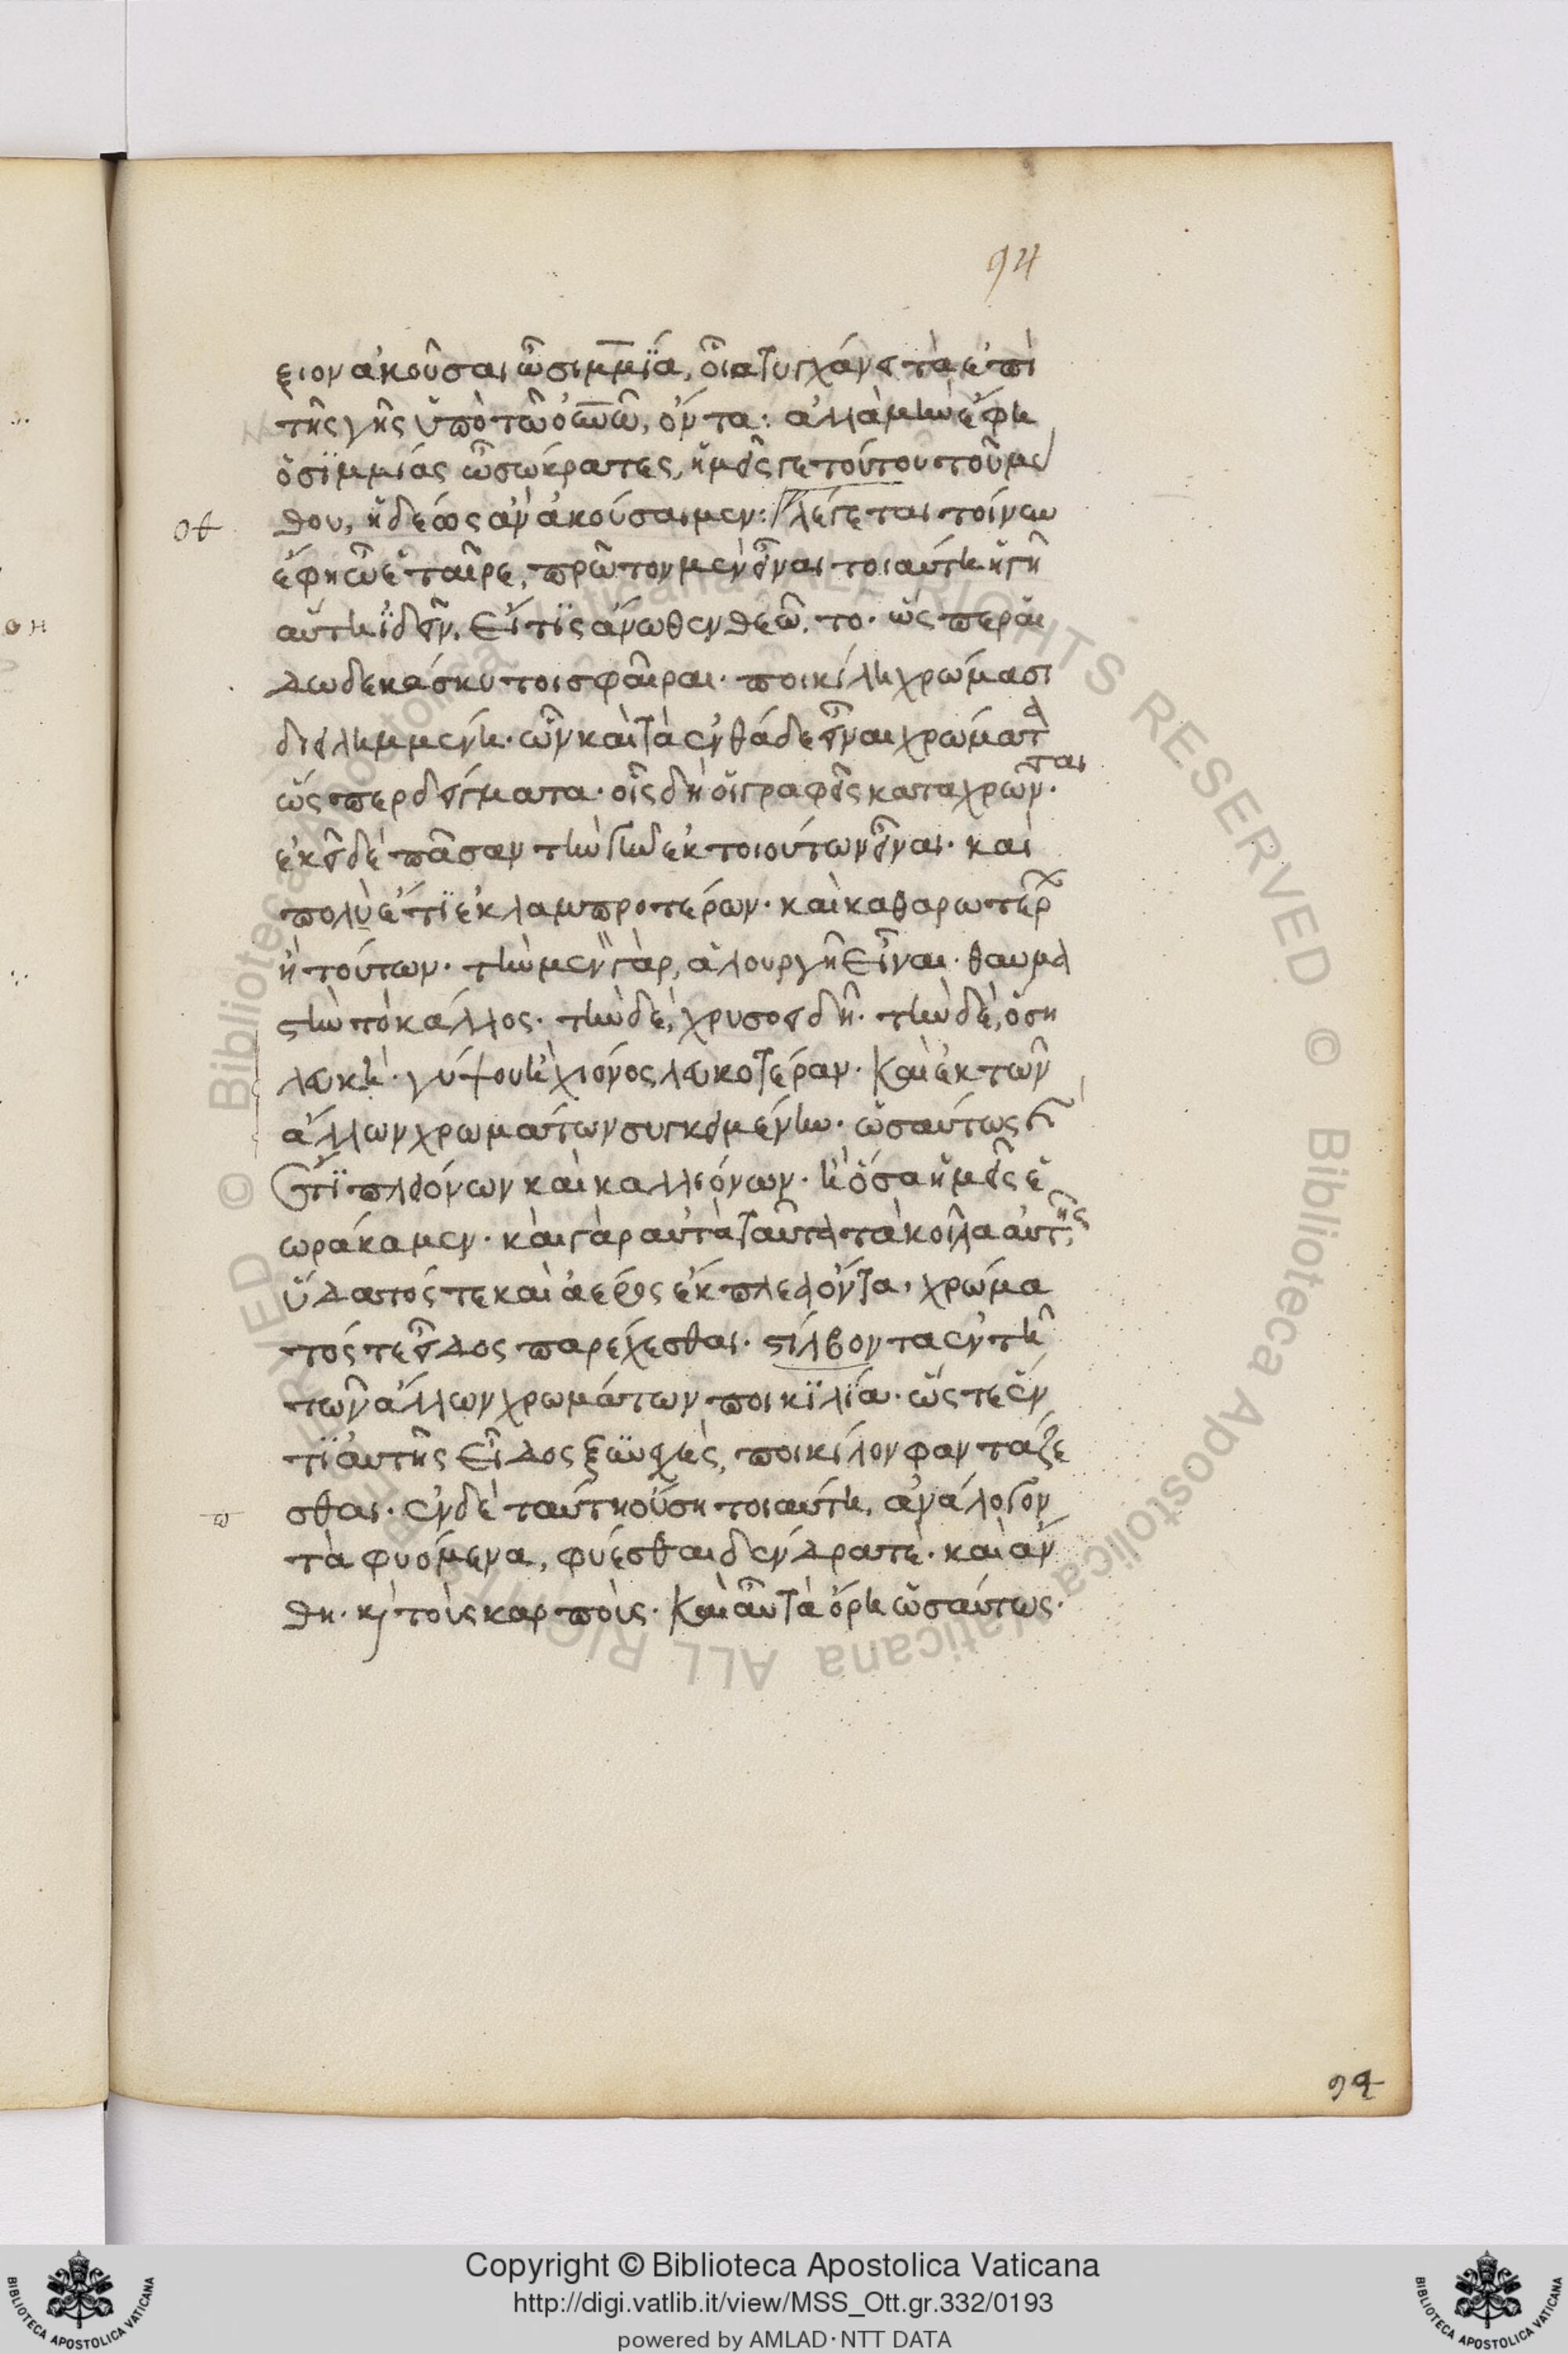 94
ξιον ἀκοῦσαι ὦ σιμμΐα, οἷα τυγχάνει τὰ ἐπὶ
τῆς γῆς ὑπὸ τῶ ο̅υ̅ν̅ω̅, ὄντα: ἀλλὰ μὴν ἔφη
ὁ σϊμμίας ὦ σώκρατες, ἡμεῖς γε τούτου τοῦ μύ
θου, ἡδέως ἂν ἀκούσαιμεν: λέγεται τοίνυν
ἔφη ὦ ἑταῖρε, πρῶτον μὲν εἶναι τοιαύτη ἡ γῆ
αὕτη ϊδεῖν. εἴ τϊς ἄνωθεν θεῶτο. ὥςπερ αἱ
δωδεκάσκυτοι σφαῖραι. ποικίλη χρώμασι
διειλημμένη. ὧν καὶ τὰ ἐνθάδε εἶναι χρώματα
ὥςπερ δείγματα. οἷς δὴ οἱ γραφεῖς καταχρῶνται.
ἐκεῖ δὲ πᾶσαν τὴν γῆν ἐκ τοιούτων εἶναι. καὶ
πολὺ ἔτϊ ἐκ λαμπροτέρων. καὶ καθαρωτέρων
ἢ τούτων. τὴν μὲν γὰρ, ἁλουργῆ εἶναι. θαυμα
στὴν τὸ κάλλος. τὴν δὲ, χρυσοειδῆ. τὴν δὲ, ὅση
λευκὴ. γύψου ἢ χιόνος λευκοτέραν. καὶ ἐκ τῶν
ἄλλων χρωμάτων συγκειμένην. ὡσαύτως καὶ
ἔτϊ πλειόνων καὶ καλλιόνων. ἢ ὅσα ἡμεῖς ἑ
ωράκαμεν. καὶ γὰρ αὐτὰ ταῦτα τὰ κοῖλα αὐτῆς,
ὕδατός τε καὶ ἀέρος ἔκπλεα ὄντα, χρώμα
τός τε εἶδος παρέχεσθαι. στίλβοντα ἐν τῆ
τῶν ἄλλων χρωμάτων ποικϊλία. ὥςτε ἕν
τϊ αὐτῆς εἶδος ξυνεχὲς, ποικίλον φαντάζε
σθαι. ἐν δὲ ταύτη οὔση τοιαύτη, ἀνάλογον
τὰ φυόμενα, φύεσθαι δένδρα τὲ. καὶ ἄν
θη. κὶ τοὺς καρποὺς. καὶ αὖ τὰ ὄρη ὡσαύτως.
94
Copyright © Biblioteca Apostolica Vaticana
http://digi.vatlib.it/view/MSS_Ott.gr.332/0193
powered by AMLAD·NTT DATA